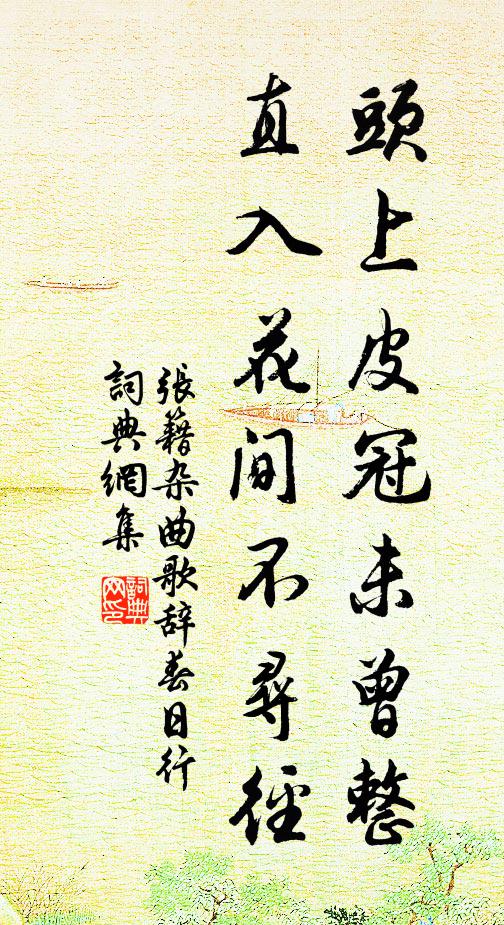 頭上皮冠未曾整
直入花間不尋徑
張籍杂曲歌辞春日行
詞典網集
詞典
网印